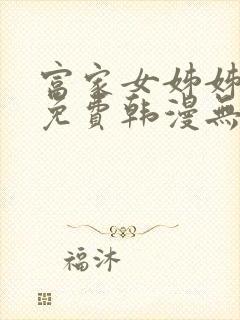 富家女姊姊
免費韩漫無
福沐